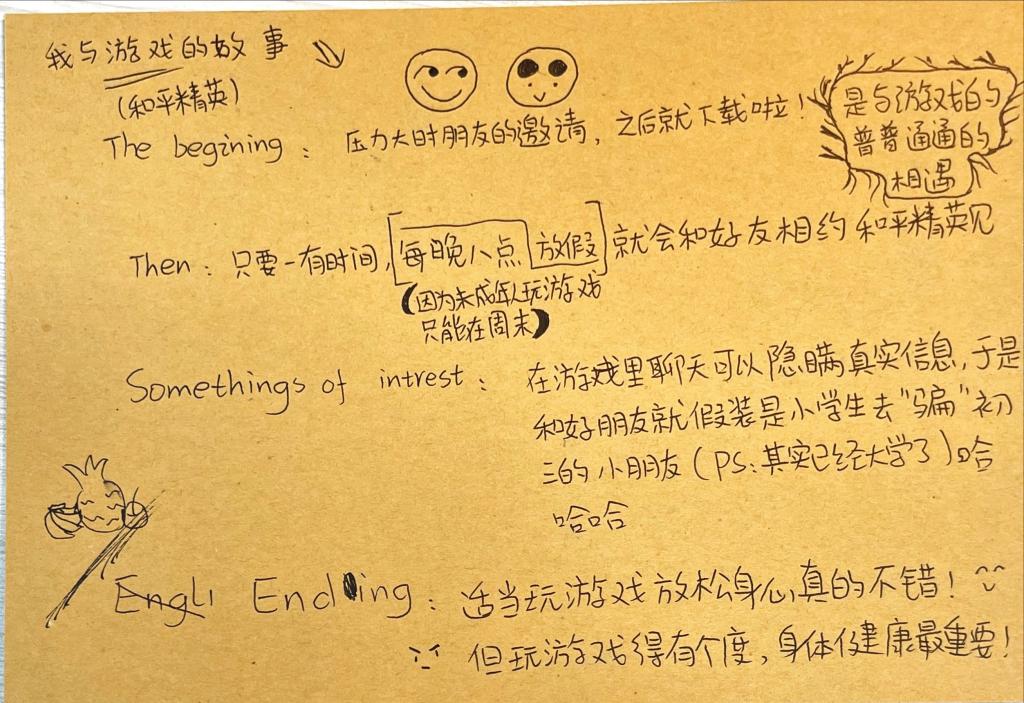 我与游戏的故事
(和平精英)
是与游戏的
普普通通的
相遇
The begining : 压力大时朋友的邀请，之后就下载啦！
Then : 只要一有时间，每晚八点 放假 就会和好友相约和平精英见
(因为未成年人玩游戏
只能在周末)
Somethings of intrest : 在游戏里聊天可以隐瞒真实信息，于是
和好朋友就假装是小学生去"骗"初
三的小朋友(PS:其实已经大学了)哈
哈哈
Engli Ending : 适当玩游戏放松身心，真的不错！
但玩游戏得有个度，身体健康最重要！